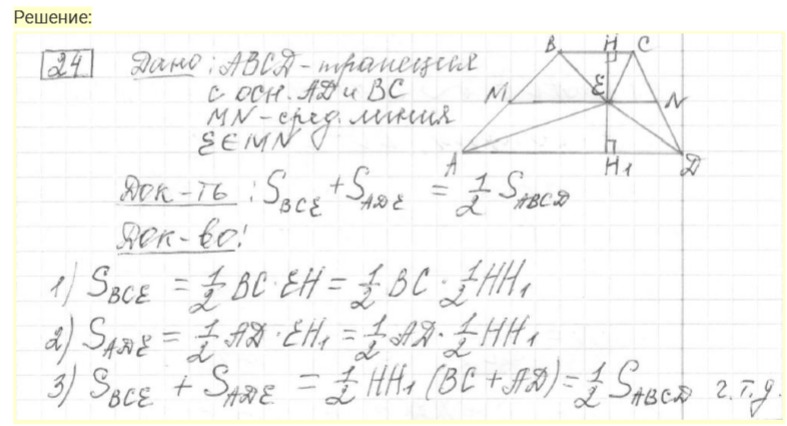 Решение:
24 Дано: ABCD - трапеция
с осн. AD и BC
MN - сред. линия
E ∈ MN
B H C
M E N
A H₁ D
Док-ть: S_BCE + S_ADE = 1/2 S_ABCD
Док-во:
1) S_BCE = 1/2 BC · EH = 1/2 BC · 1/2 HH₁
2) S_ADE = 1/2 AD · EH₁ = 1/2 AD · 1/2 HH₁
3) S_BCE + S_ADE = 1/2 HH₁ (BC + AD) = 1/2 S_ABCD ч.т.д.